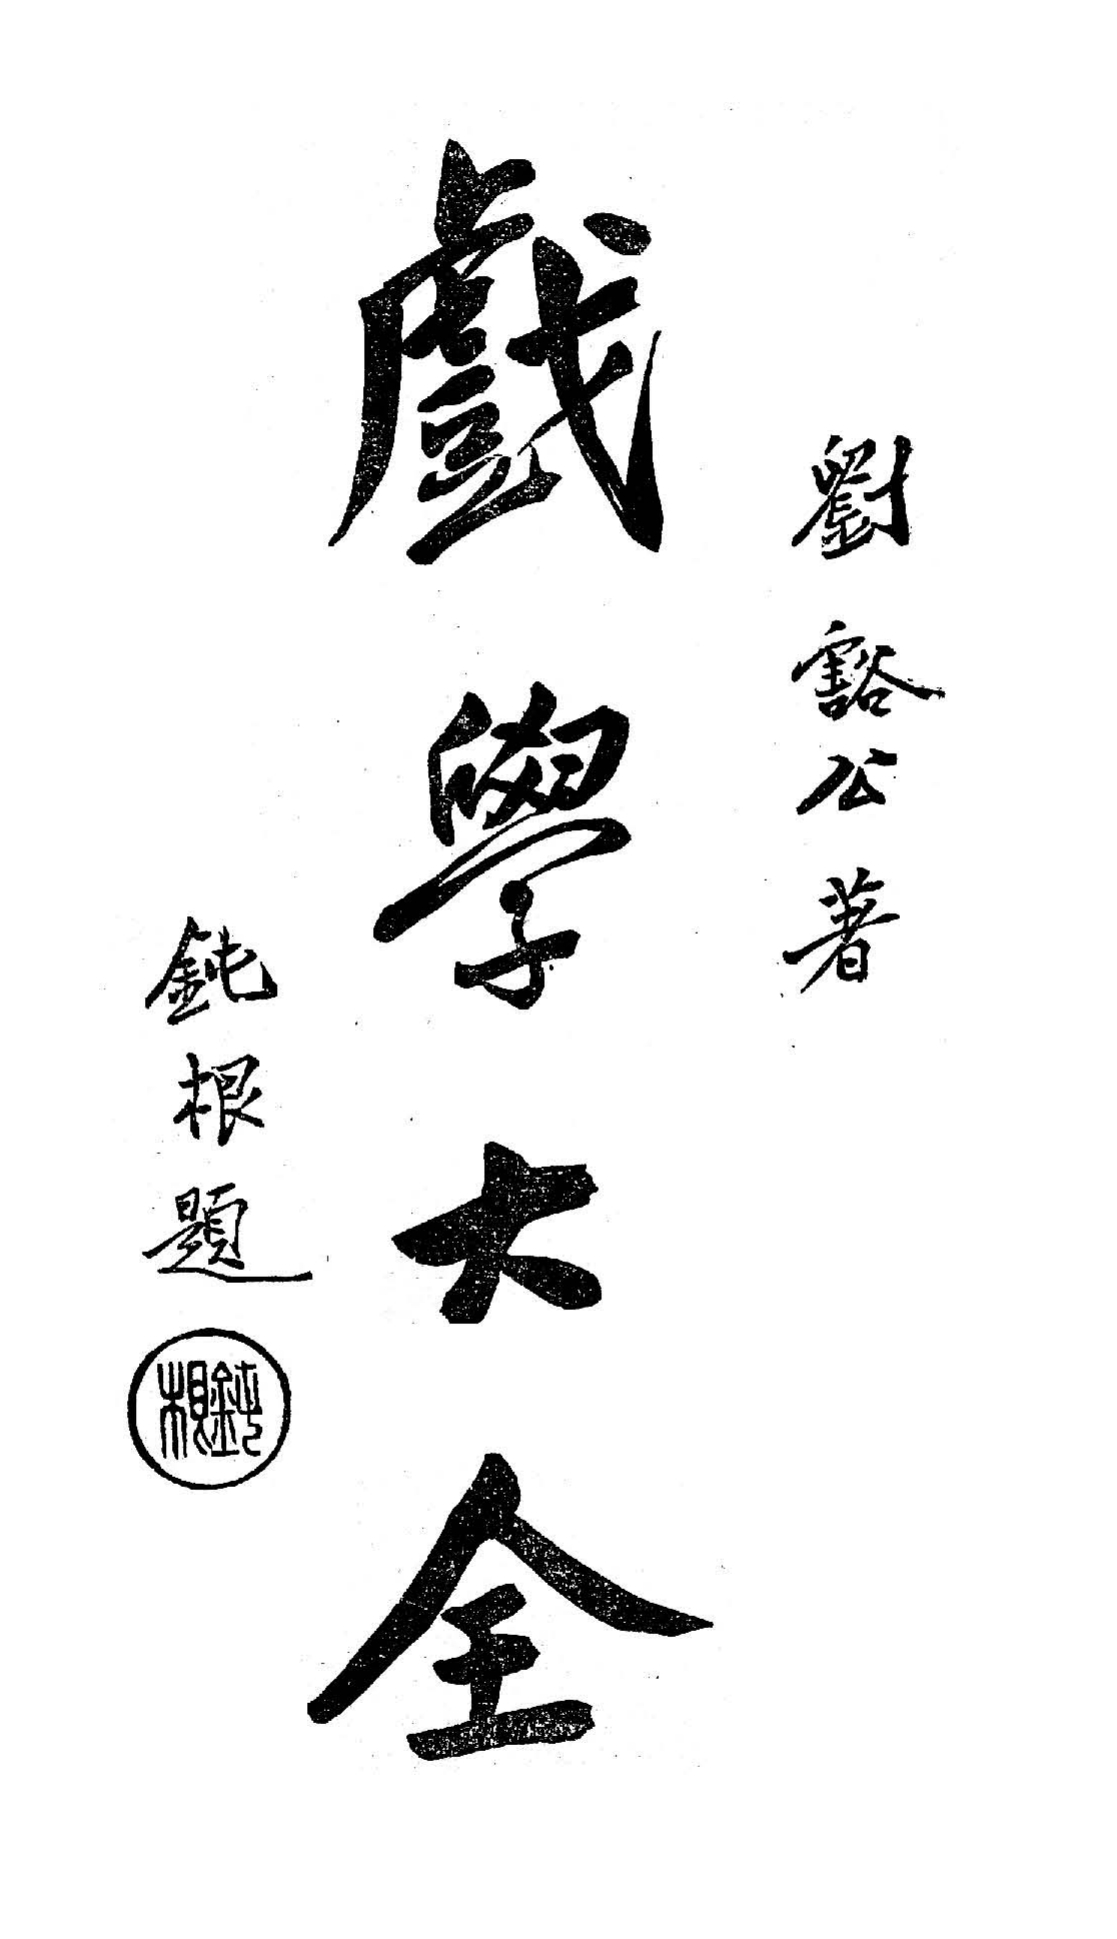 劉豁公著
戲學大全
鈍根題
鈍根